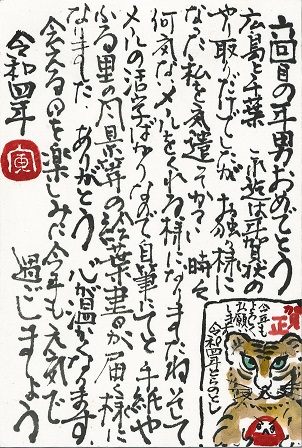 六回目の年男おめでとう
広島と千葉 これ迄は年賀状の
やり取りだけでしたが お独り様に
なった私を気遣ってかな 時々
何気なメールをくれる様になりましたね そして
メールの活字ばかりなので自筆にてと手紙や
ふる里の風景等の絵葉書が届く様に
なりました ありがとう 心が温かくなります
会える日を楽しみに今年も元気で
過しましょう
令和四年
寅
賀正
今年も
よろしく
お願い
します
令和四年とらのとし